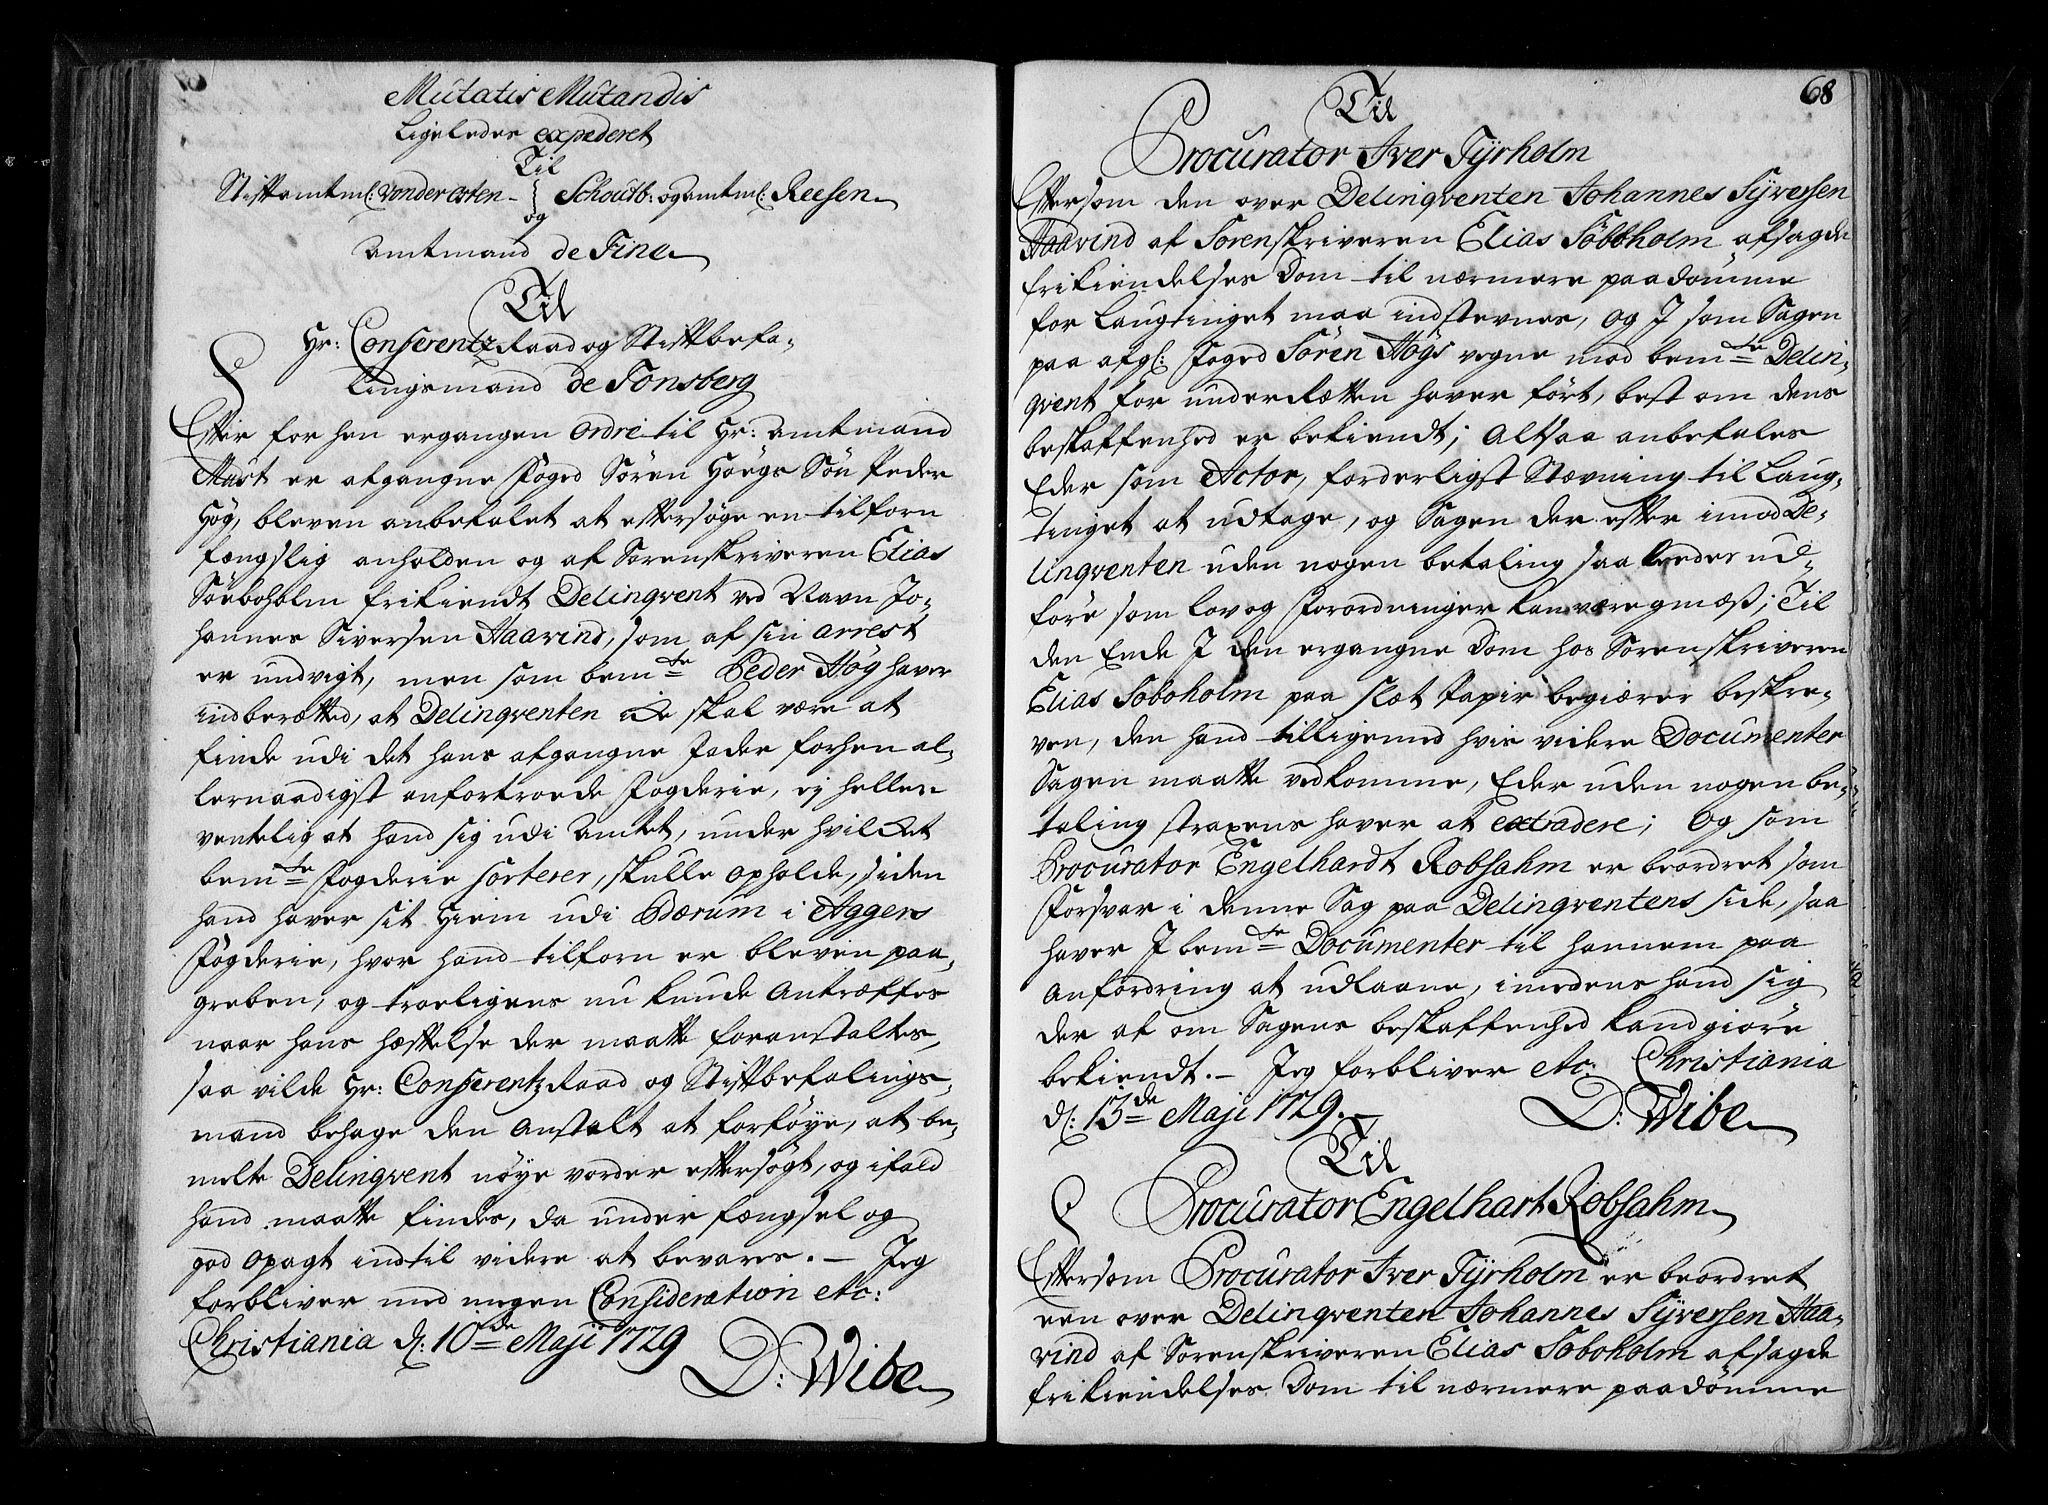 Mutatis Mutandis
Ligeledes expederet
Til
Stiftamtm: von der Osten - og Schoutb: og amtm: Reesen
Amtmand de Fine
Til
Hr: Conferentz Raad og Stiftbefa-
lingsmand de Tonsberg
Efter for hen ergangen Ordre til Hr: Amtmand
Must er afgangne Foged Sören Höegs Sön Peder
Hög, bleven anbefalet at eftersöge en tilforn
fængslig anholden og af Sorenskriveren Elias
Söeboholm frikiendt Delinqvent ved Navn Jo-
hannes Siversen Haavind, som af sin arrest
er undvigt, men som bemte Peder Hög haver
indberætted, at Delinqventen icke skal være at
finde udi det hans afgangne Fader forhen al-
lernaadigst anfortroede Fogderie, ej heller
ventelig at hand sig udi Amtet, under hvilcket
bemte Fogderie sorterer, skulle opholde, siden
hand haver sit Hiem udi Bærum i Aggers
Fogderie, hvor hand tilforn er bleven paa-
greben, og troeligens nu kunde Antræffes
naar hans hæftelse der maatte foranstaltes,
saa vilde Hr: Conferentz Raad og Stiftbefalings-
mand behage den Anstalt at forföye, at be-
melte Delinqvent nöye vorder eftersögt, og ifald
hand maatte findes, da under fængsel og
god opagt indtil videre at bevares. - Jeg
forbliver med megen Consideration etc:
Christiania d: 10de Maji 1729
D: Wibe
68
Til
Procurator Iver Tyrholm
Eftersom den over Delinqventen Johannes Syversen
Haavind af Sorenskriveren Elias Söboholm afsagde
frikiendelses Dom til nærmere paadömme
for Laugtinget maa indstevnes, og I som Sagen
paa afg: Foged Sören Högs vegne mod bemte Delin-
qvent for underRætten haver fört, best om dens
beskaffenhed er bekiendt; Altsaa anbefales
Eder som Actor, forderligst Stævning til Laug-
tinget at udtage, og Sagen der efter imod De-
linqventen uden nogen betaling saaledes ud-
före som Lov og Forordninger kan være gmæs; Til
den Ende I den ergangne Dom hos Sorenskriveren
Elias Soboholm paa slæt Papir begiærer beskre-
ven, den hand tilligemed hvis videre Documenter
Sagen maatte vedkomme, Eder uden nogen be-
taling straxens haver at extradere; Og som
Procurator Engelhardt Robsahm er beordret som
Forsvar i denne Sag paa Delinqventens side, saa
haver I bemte Documenter til hannem paa
Anfordring at udlaane, imedens hand sig
der af om Sagens beskaffenhed kand giöre
bekiendt. - Jeg forbliver etc: Christiania
d: 13de Maji 1729. -
D: Wibe
Til
Procurator Engelhart Robsahm
Eftersom Procurator Iver Tyrholm er beordret
een over Delinqventen Johannes Syversen Haa-
vind af Sorenskriveren Elias Soboholm afsagde
frikiendelses Dom til nærmere paadömme